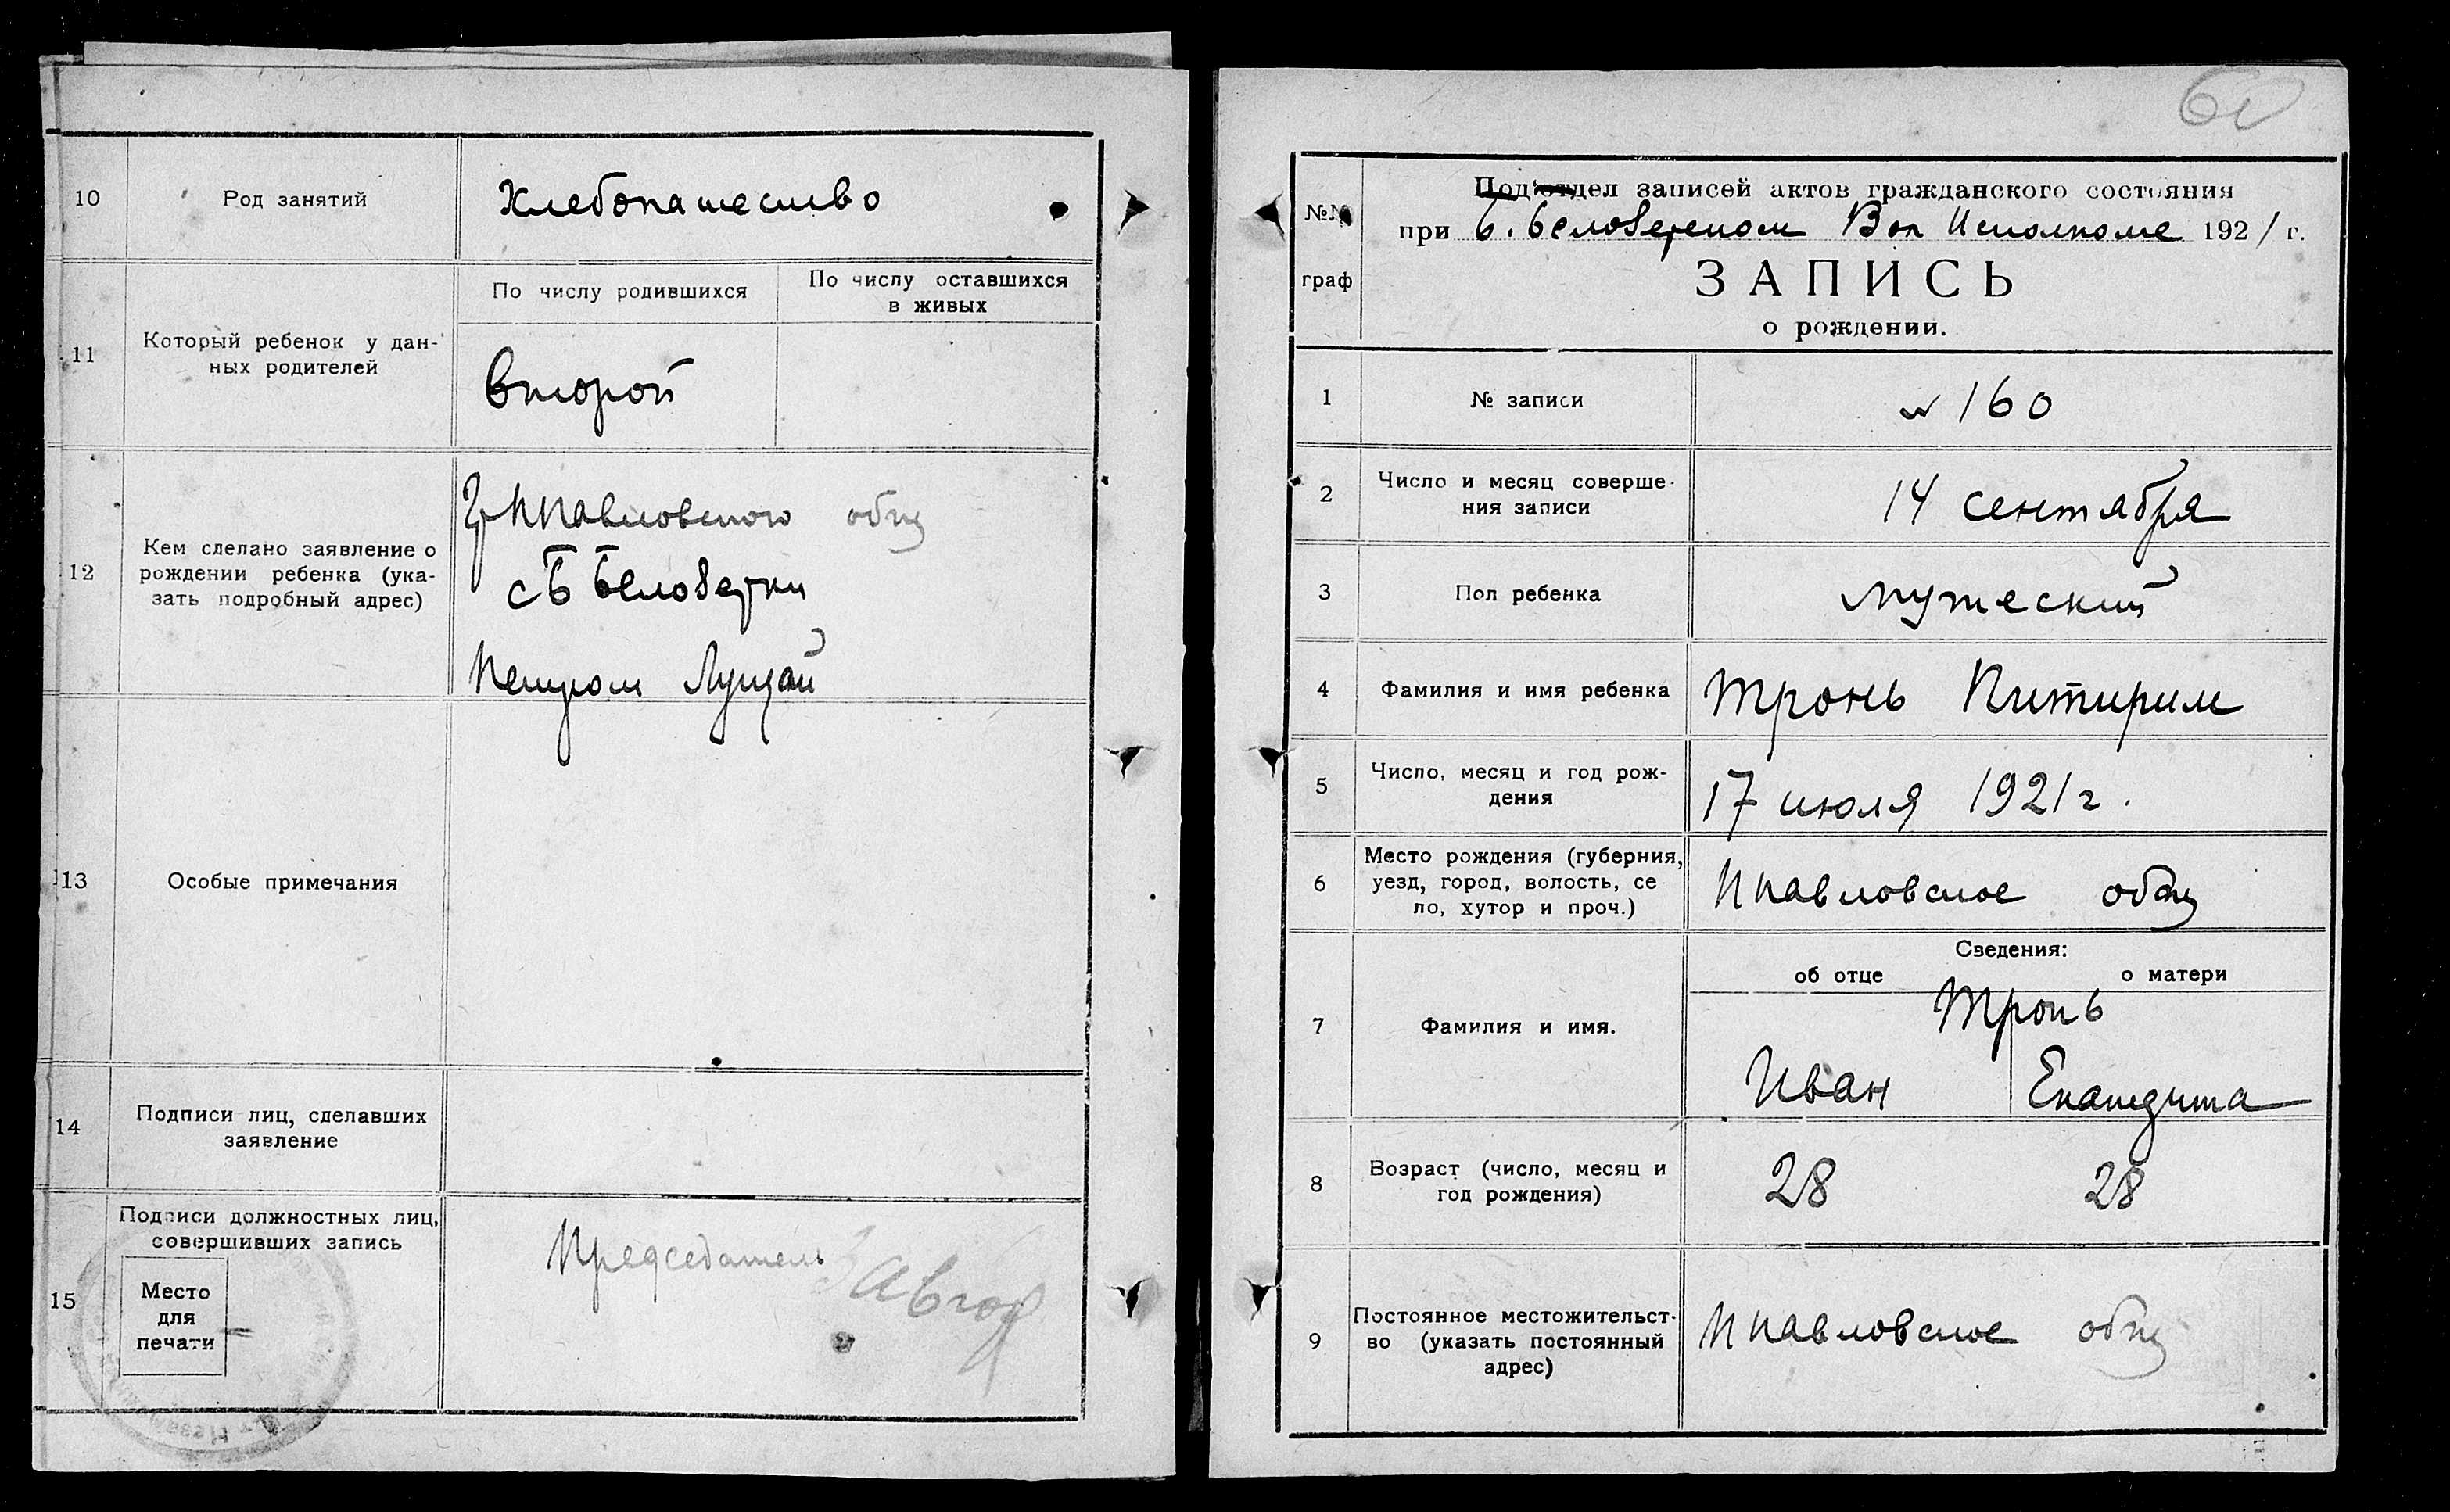 10
Род занятий
Хлебопашество
11
Который ребенок у дан-
ных родителей
По числу родившихся
По числу оставшихся
в живых
второй
12
Кем сделано заявление о
рождении ребенка (ука-
зать подробный адрес)
Гр ППавловского общ
с Б Белозерки
Петром Лущай
13
Особые примечания
14
Подписи лиц, сделавших
заявление
15
Подписи должностных лиц,
совершивших запись
Место
для
печати
Председатель
№№
граф
Под'отдел записей актов гражданского состояния
при Б. Белозерском Вол Исполкоме 1921 г.
ЗАПИСЬ
о рождении.
1
№ записи
№ 160
2
Число и месяц соверше-
ния записи
14 сентября
3
Пол ребенка
мужеский
4
Фамилия и имя ребенка
Тронь Питирим
5
Число, месяц и год рож-
дения
17 июля 1921 г.
6
Место рождения (губерния,
уезд, город, волость, се
ло, хутор и проч.)
ППавловское общ
Сведения:
об отце
о матери
7
Фамилия и имя.
Тронь
Иван
Екатерина
8
Возраст (число, месяц и
год рождения)
28
28
9
Постоянное местожительст-
во (указать постоянный
адрес)
ППавловское общ